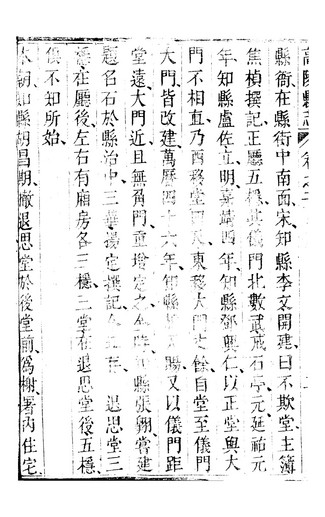 高陵縣志 卷之二
縣衙在縣街中南面宋知縣李文開建曰不欺堂主簿
焦楨撰記正廳五楹其儀門北數武戒石亭元延祐元
年知縣盧佐立明嘉靖四年知縣鄧興仁以正堂與大
門不相直乃酉移堂向東移大門丈餘自堂至儀門
大門皆改建萬曆四十六年知縣 賜又以儀門距
堂遠大門近且無角門重增定之 知縣張翱嘗建
題名石於縣治中三華 定撰記今 退思堂三
楹在廳後左右有廂房各三楹二堂在退思堂後五楹
俱不知所始
本朝知縣胡昌期撤退思堂於後堂前為棚署內住宅